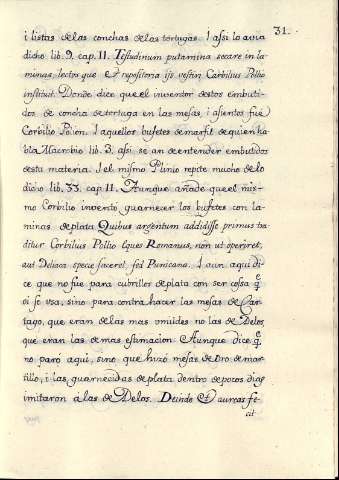 31.
i listas de las conchas de las tortugas. I assi lo avia
dicho lib. 9. cap. 11. Testudinum putamina secare in la-
minas, lectos que & repositoria iis vestiri Carbilius Pollio
instituit. Donde dice que el inventor destos embuti-
dos de concha de tortuga en las mesas, i asientos fue
Corbilio Polion. I aquellos bufetes de marfil de quien ha-
bla Macrobio lib. 3. assi se an de entender embutidos
desta materia. I el mismo Plinio repite mucho de lo
dicho lib. 33. cap. 11. Aunque añade que el mis-
mo Corbilio inventó guarnecer los bufetes con la-
minas de plata Quibus argentum addidisse primus tra
ditur Corbilius Pollio Eques Romanus, non ut operiret,
aut Deliaca specie faceret, sed Punicana. I aun aqui di-
ce que no fue para cubrillos de plata con ser cossa q̃
oi se usa, sino para contrahacer las mesas de Car-
tago, que eran de las mas umildes no las de Delos,
que eran las de mas estimacion. Aunque dice q̃
no paró aqui, sino que hizó mesas de oro de mar-
tillo, i las guarnecidas de plata dentro de pocos dias
imitaron a las de Delos. Deinde & aureas fe-
cit